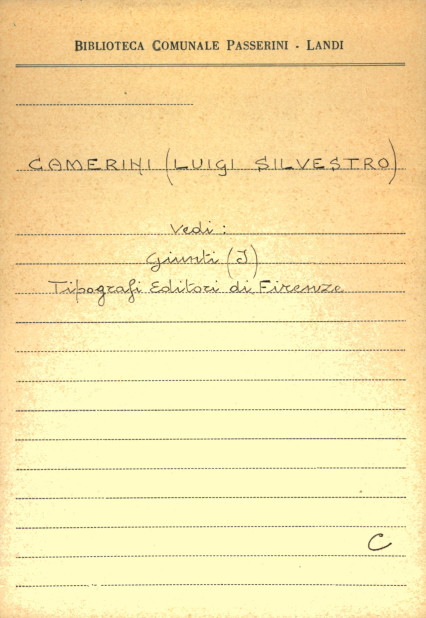 BIBLIOTECA COMUNALE PASSERINI - LANDI
CAMERINI (LUIGI SILVESTRO)
Vedi:
Giunti (I)
Tipografi Editori di Firenze
C